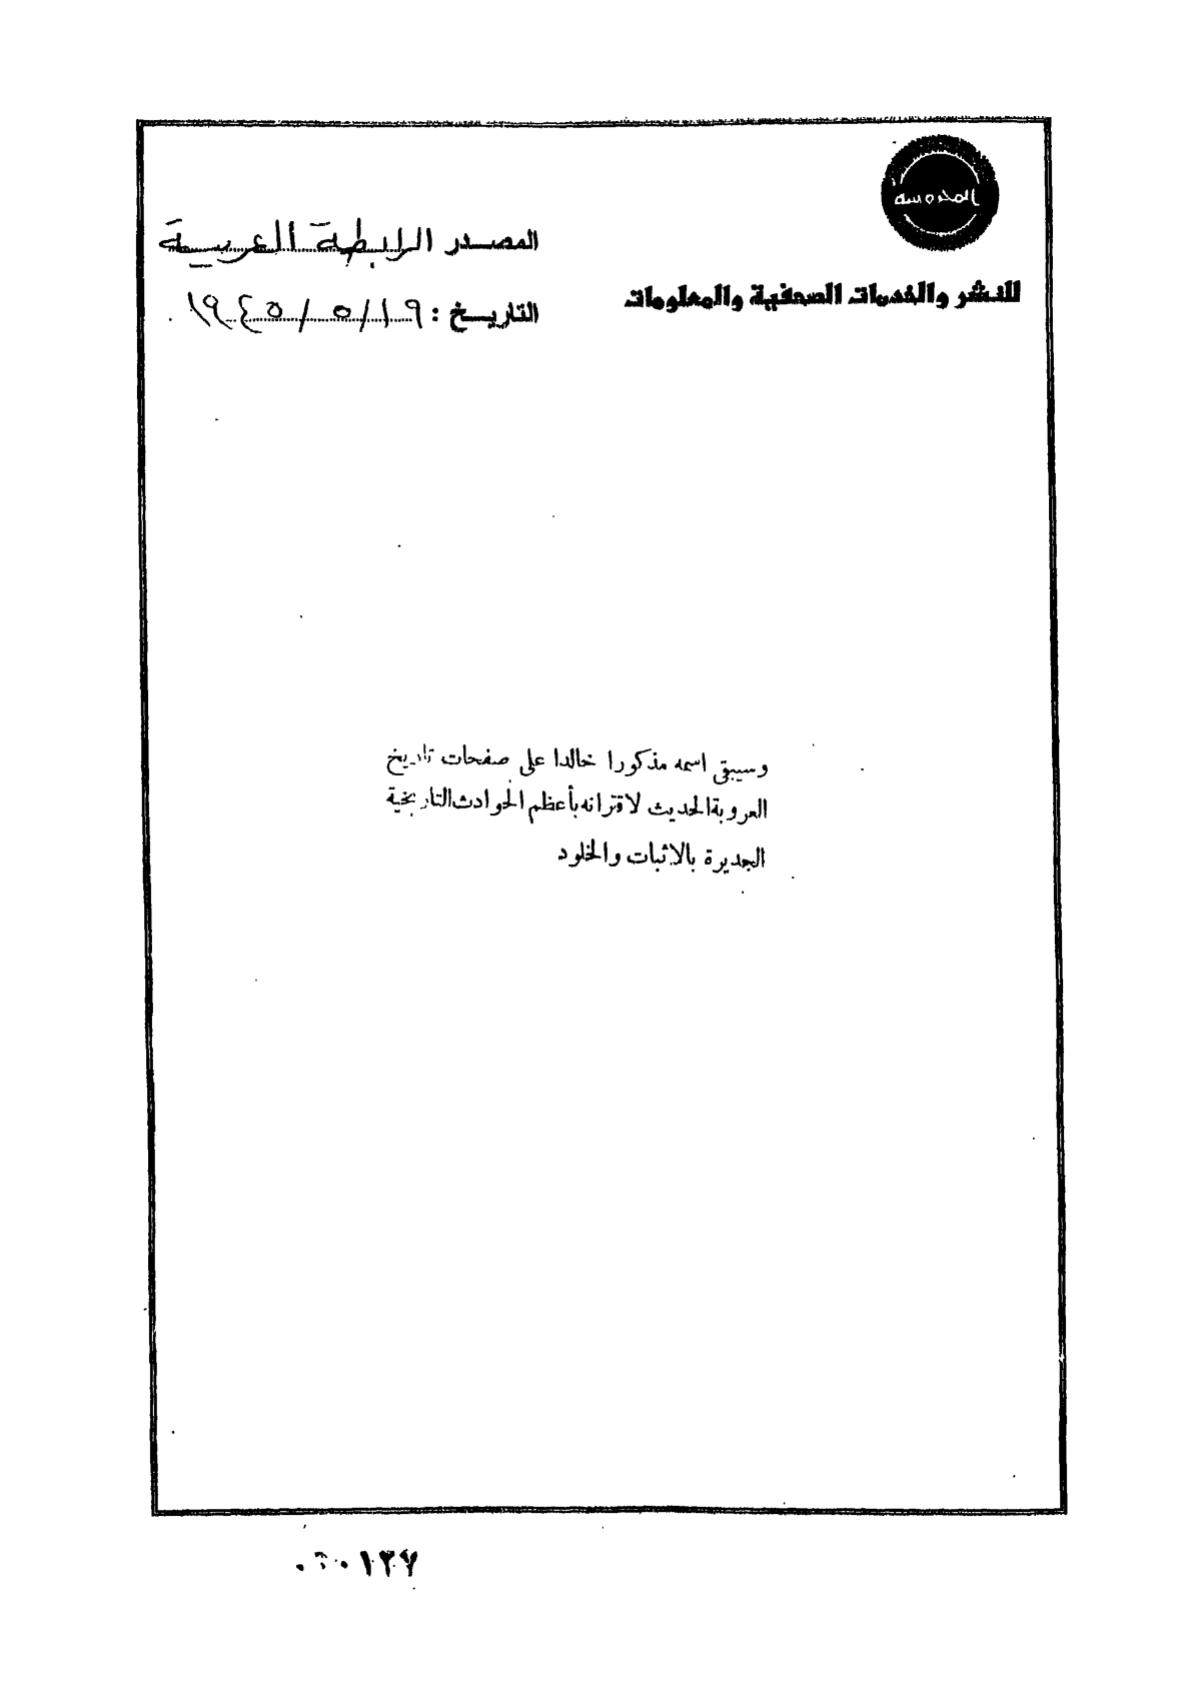 المحروسة
للنشر والخدمات الصحفية والمعلومات
المصدر الرابطة العربية
التاريخ : ١٩/٥/١٩٤٥
وسيبقى اسمه مذكورا خالدا على صفحات تاريخ
العروبة الحديث لاقترانه بأعظم الحوادث التاريخية
الجديرة بالاثبات والخلود